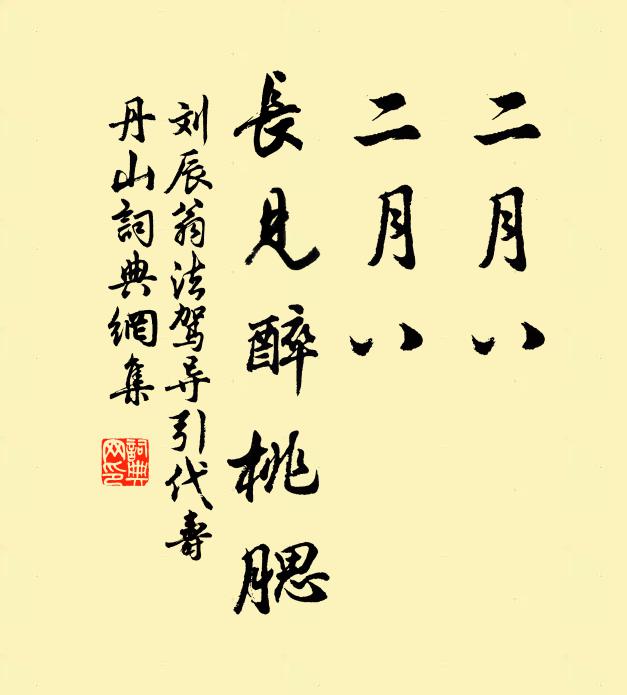 二月八
二月八
長見醉桃腮
刘辰翁法驾导引代壽
丹山詞典網集
詞典网印